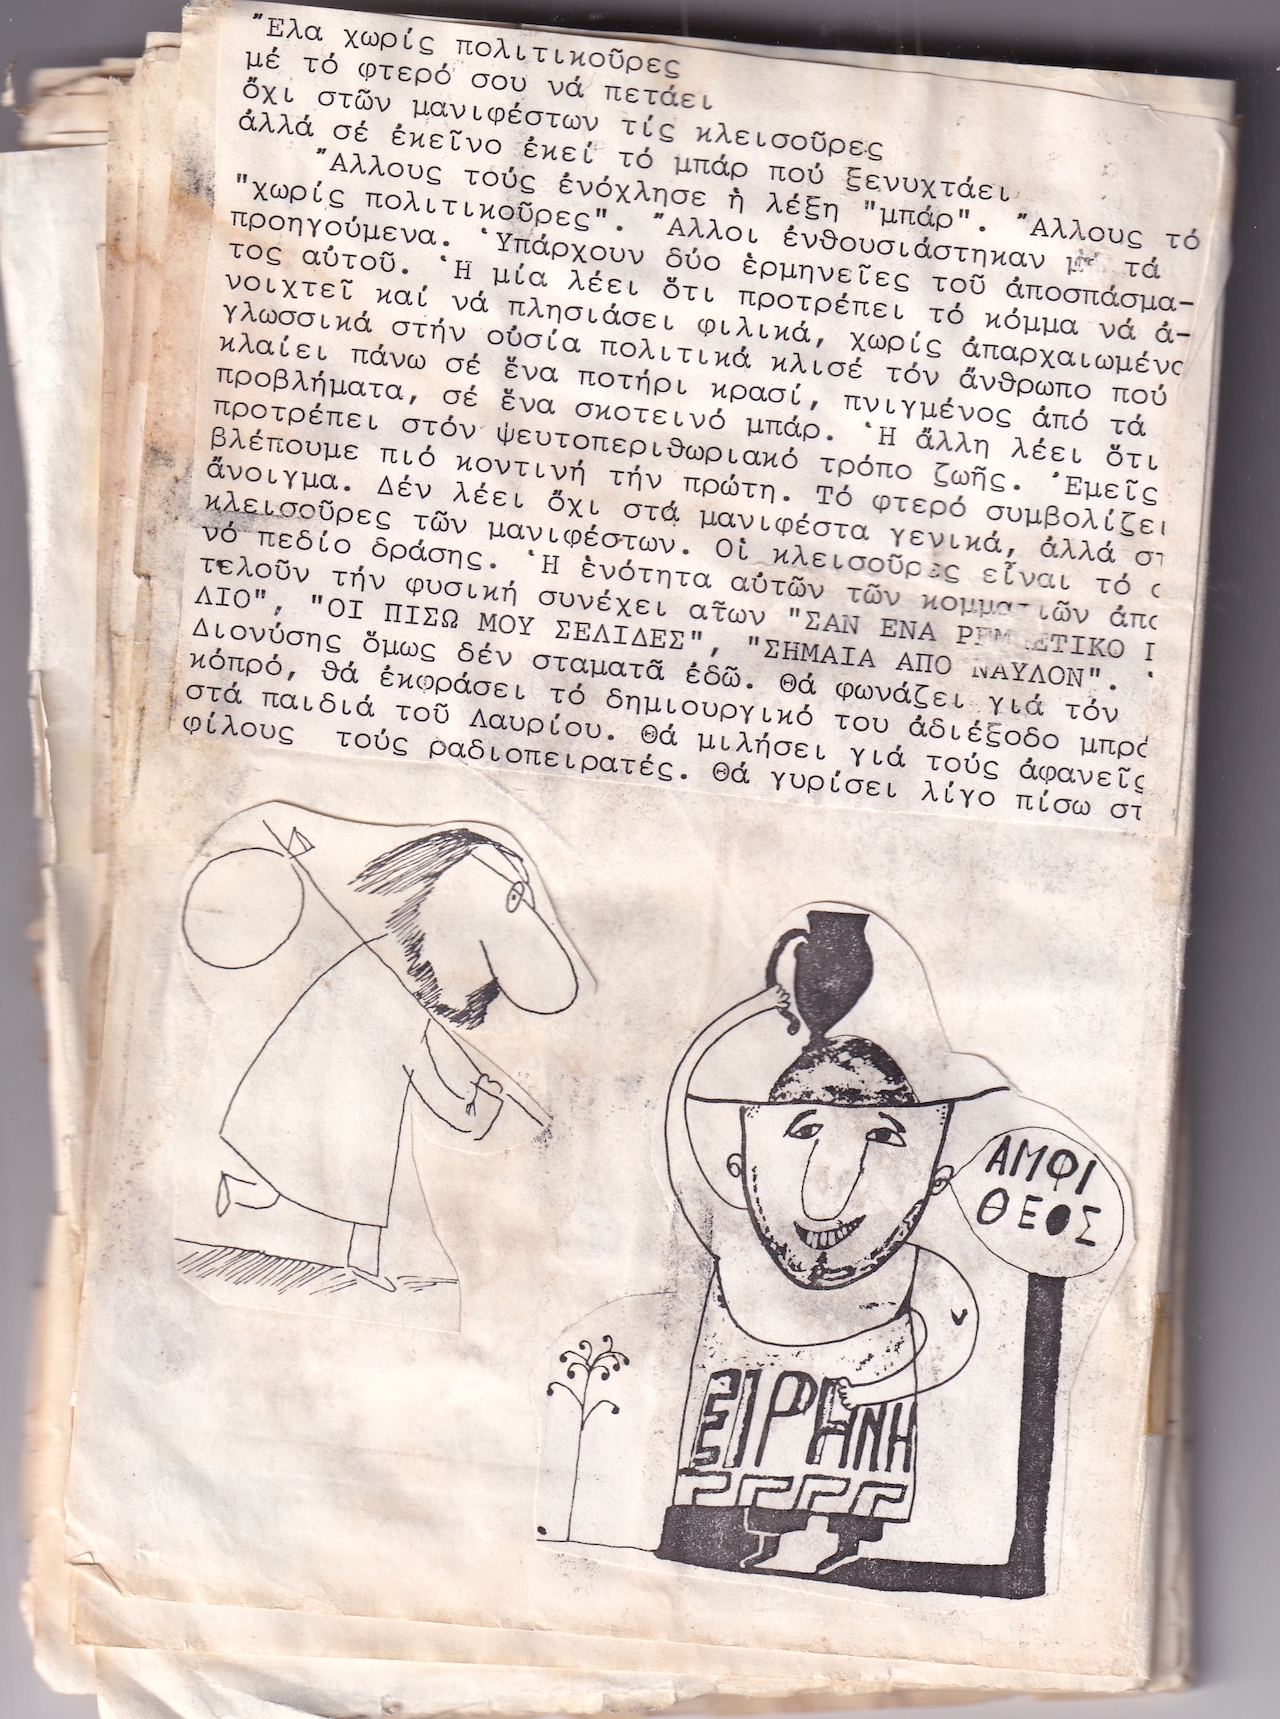 Ἔλα χωρίς πολιτικοῦρες
μέ τό φτερό σου νά πετάει
ὄχι στῶν μανιφέστων τίς κλεισοῦρες
ἀλλά σέ ἐκεῖνο ἐκεί τό μπάρ πού ξενυχτάει
Ἄλλους τούς ἐνόχλησε ἡ λέξη "μπάρ". Ἄλλους τό
"χωρίς πολιτικοῦρες". Ἄλλοι ἐνθουσιάστηκαν μέ τά
προηγούμενα. Ὑπάρχουν δύο ἑρμηνεῖες τοῦ ἀποσπάσμα-
τος αὐτοῦ. Ἡ μία λέει ὅτι προτρέπει τό κόμμα νά ἀ-
νοιχτεῖ καί νά πλησιάσει φιλικά, χωρίς ἀπαρχαιωμένα
γλωσσικά στήν οὐσία πολιτικά κλισέ τόν ἄνθρωπο πού
κλαίει πάνω σέ ἕνα ποτήρι κρασί, πνιγμένος ἀπό τά
προβλήματα, σέ ἕνα σκοτεινό μπάρ. Ἡ ἄλλη λέει ὅτι
προτρέπει στόν ψευτοπεριθωριακό τρόπο ζωῆς. Ἐμεῖς
βλέπουμε πιό κοντινή τήν πρώτη. Τό φτερό συμβολίζει
ἄνοιγμα. Δέν λέει ὄχι στά μανιφέστα γενικά, ἀλλά στ
κλεισοῦρες τῶν μανιφέστων. Οἱ κλεισοῦρες εἶναι τό
νό πεδίο δράσης. Ἡ ἑνότητα αὐτῶν τῶν κομματιῶν ἀπο
τελοῦν τήν φυσική συνέχει ατῶν "ΣΑΝ ΕΝΑ ΡΕΜΠΕΤΙΚΟ Γ
ΛΙΟ", "ΟΙ ΠΙΣΩ ΜΟΥ ΣΕΛΙΔΕΣ", "ΣΗΜΑΙΑ ΑΠΟ ΝΑΥΛΟΝ".
Διονύσης ὅμως δέν σταματᾶ ἐδῶ. Θά φωνάζει γιά τόν
κόπρό, θά ἐκφράσει τό δημιουργικό του ἀδιέξοδο μπρό
στά παιδιά τοῦ Λαυρίου. Θά μιλήσει γιά τούς ἀφανεῖς
φίλους τούς ραδιοπειρατές. Θά γυρίσει λίγο πίσω στ
ΑΜΦΙ
ΘΕΟΣ
ΕΙΡΗΝΗ